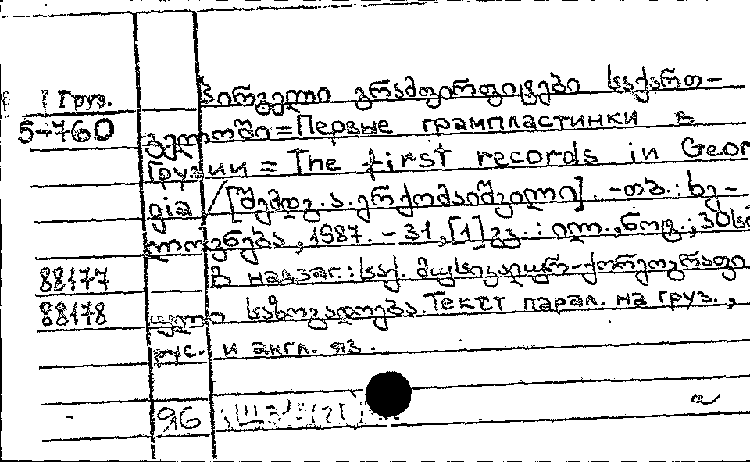 Груз. პირველი გრამფირფიტები საქართ-
5-760 ველოში = Первые грампластинки в
Грузии = The first records in Geor
gia / [შემდგ. ა. ერქომაიშვილი]. - თბ. : ხე-
ლოვნება, 1987. - 31, [1] გვ. : ილ., ნოტ. ; 30
88177 В надзаг.: საქ. მუსიკალურ-ქორეოგრაფი
88178 ული საზოგადოება. Текст парал. на груз.,
рус. и англ. яз.
96